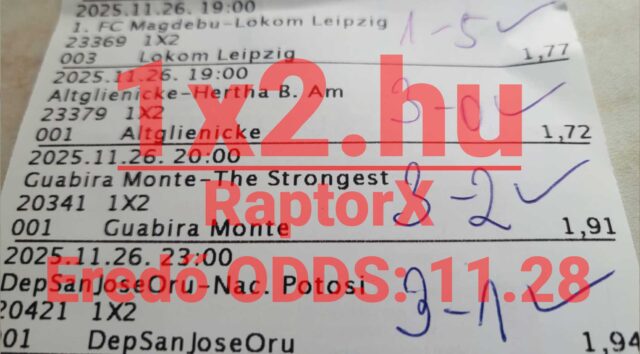 2025.11.26. 19:00
1. FC Magdebu-Lokom Leipzig
23369 1X2
003 Lokom Leipzig 1,77
1-5 ✓
2025.11.26. 19:00
Altglienicke-Hertha B. Am
23379 1X2
001 Altglienicke 1,72
3-0 ✓
2025.11.26. 20:00
Guabira Monte-The Strongest
20341 1X2
001 Guabira Monte 1,91
3-2 ✓
2025.11.26. 23:00
DepSanJoseOru-Nac. Potosi
20421 1X2
01 DepSanJoseOru 1,94
3-1 ✓
1x2.hu
RaptorX
Eredő ODDS: 11.28